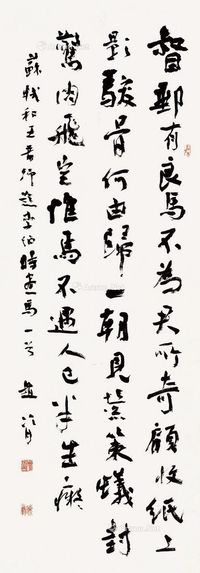 督郵有良馬不為君所奇顧收紙上
影駿骨何由歸一朝見縈策蟻封
驚肉飛豈惟馬不遇人已半生癡
蘇軾和王晉卿題李伯時畫馬一首 趙冷月